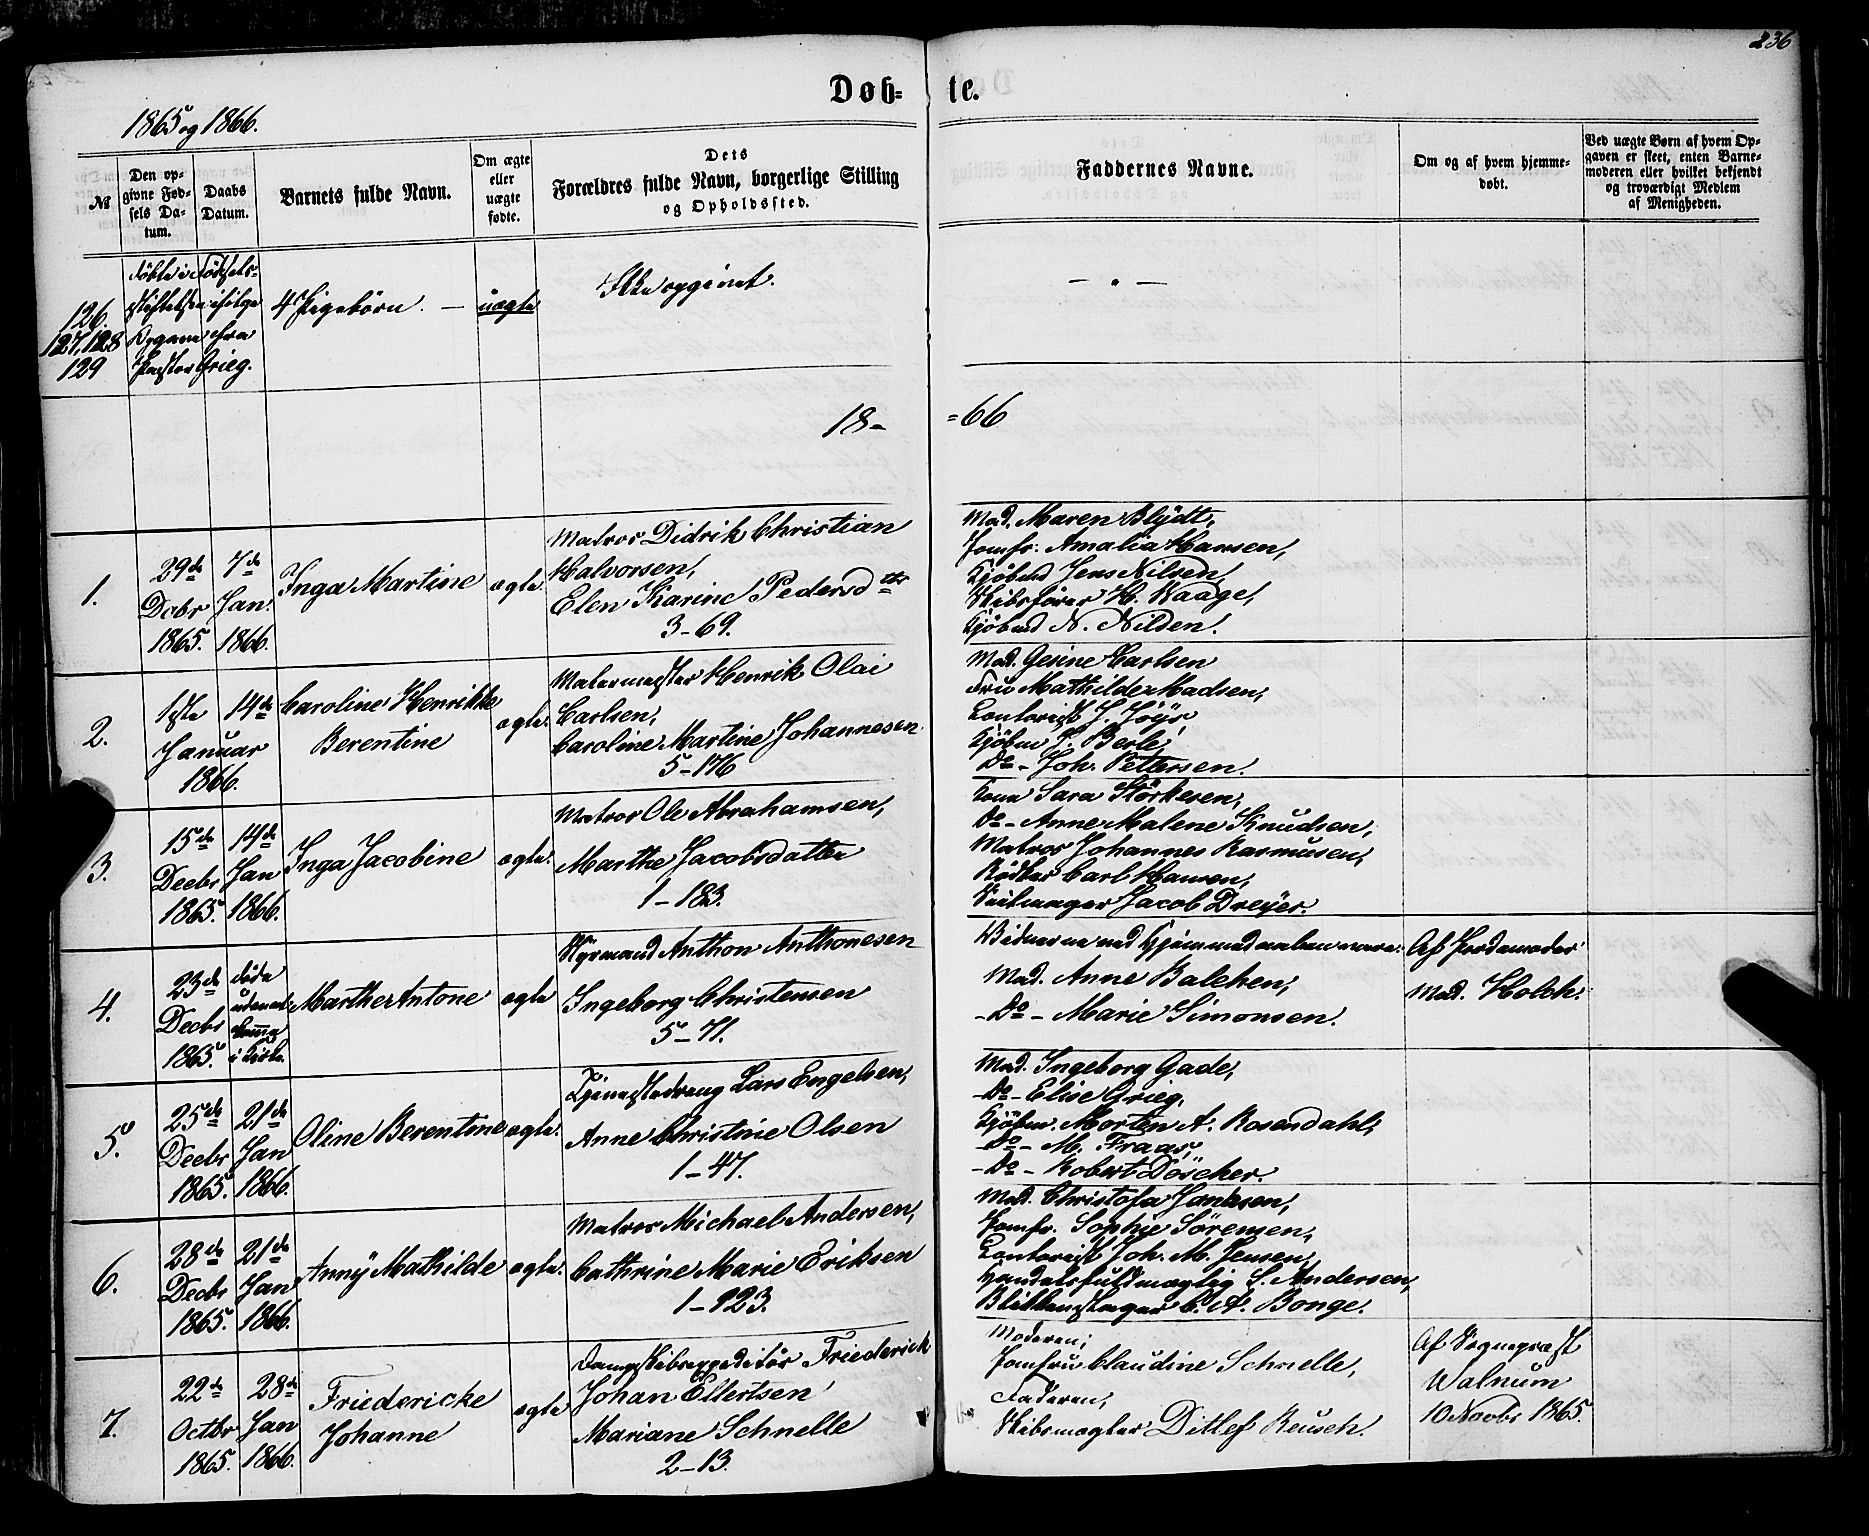 236
Døb- te.
1865 og 1866.
№
Den opgivne Fødsels Datum.
Daabs Datum.
Barnets fulde Navn.
Om ægte eller uægte fødte.
Dets Forældres fulde Navn, borgerlige Stilling og Opholdssted.
Faddernes Navne.
Om og af hvem hjemmedøbt.
Ved uægte Børn af hvem Opgaven er skeet, enten Barnemoderen eller hvilket bekjendt og troværdigt Medlem af Menigheden.
126.
127, 128
129
Døbte i Fødsels-
stiftelsen ifølge
Opgave fra
Pastor Grieg.
4 Pigebörn. —
uægte
Ikke opgivet.
— " —
18- =66
1.
29de
Decbr
1865.
7de
Jan.
1866.
Inga Martine
ægte.
Matros Didrik Christian
Halvorsen,
Elen Karine Pedersdtr
3-69.
Mad. Maren Blydt,
Jomfr. Amalia Hansen,
Kjöbmd Jens Nilsen,
Skibsfører H. Waage,
Kjöbmd N. Nilsen.
2.
1ste
Januar
1866.
14de
Caroline Henrikke
Berentine
ægte.
Malermester Henrik Olai
Carlsen,
Caroline Martine Johannesen
5-176
Mad. Gesine Carlsen
Fru Mathilde Madsen,
Contorist J. Jöys
Kjöbm J. Berle,
Do - Joh. Pettersen.
3.
15de
Decbr
1865.
14de
Jan
1866.
Inga Jacobine
ægte.
Matros Ole Abrahamsen,
Marthe Jacobsdatter
1-183.
Kone Sara Störkesen,
Do - Anne Malene Knudsen,
Matros Johannes Rasmusen,
Bödker Carl Hansen,
Seilmager Jacob Dreyer.
4.
23de
Decbr
1865.
döde
uden at
komme
i Kirke.
Marthe Antone
ægte
Styrmand Anthon Anthonesen
Ingeborg Christensen
5-71.
Vidnerne ved Hjemmedaaben vare:
Mad. Anne Balchen,
- Do - Marie Simonsen.
Af Jordemoder
Mad. Holck.
5.
25de
Decbr
1865.
21de
Jan
1866.
Oline Berentine
ægte.
Tjenestedreng Lars Engelsen,
Anne Christine Olsen
1-47.
Mad. Ingeborg Gade,
- Do - Elise Grieg,
Kjöbm. Morten A. Rosendahl,
- Do - M. Fraas,
- Do - Robert Döscher.
6.
28de
Decbr
1865.
21de
Jan
1866.
Anny Mathilde
ægte.
Matros Michael Andersen,
Cathrine Marie Eriksen
1-123.
Mad. Christofa Janssen,
Jomfr. Sophie Sörensen,
Contorist Joh. M. Jensen,
Handelsfuldmægtig S. Andersen,
Blikkenslager C. A. Bonge.
7.
22de
Octbr
1865.
28de
Jan
1866.
Friedericke
Johanne
ægte
Dampskibsexpeditör Friederick
Johan Ellertsen
Mariane Schnelle
2-13.
Moderen,
Jomfru Claudine Schnelle,
Faderen,
Skibsmægler Ditlef Reusch.
Af Sognepræst
Walnum
10 Novbr 1865.